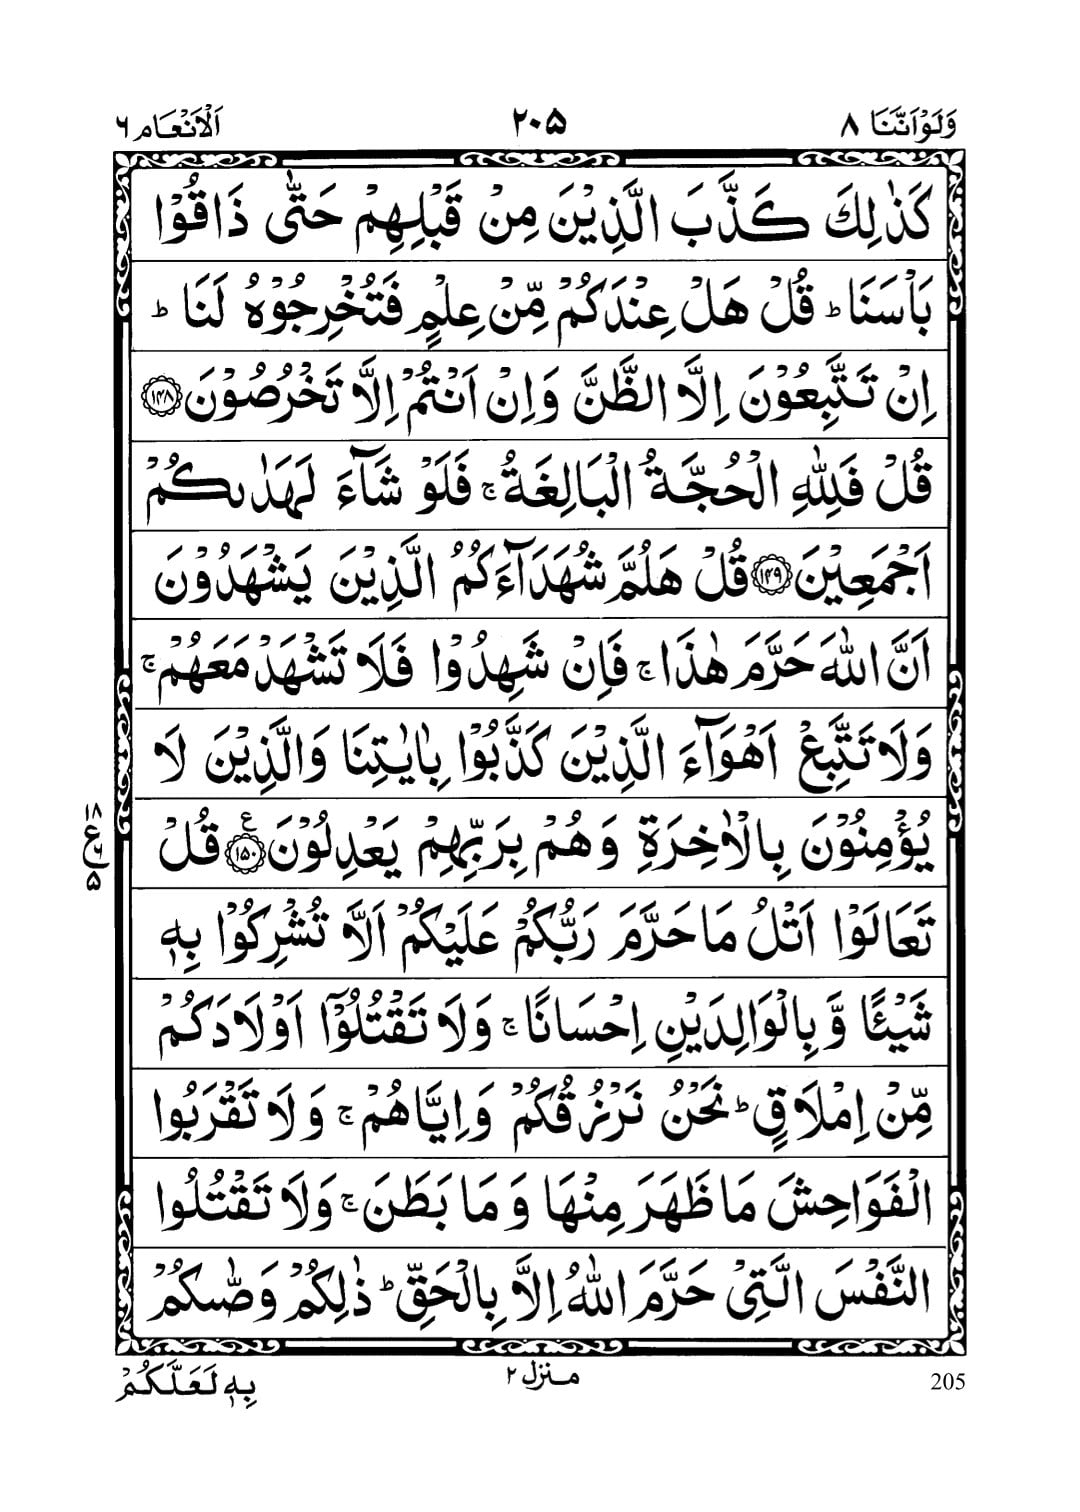 وَلَوْاَنَّنَا ٨ ٢٠٥ اَلْاَنْعَام ٦
كَذٰلِكَ كَذَّبَ الَّذِيْنَ مِنْ قَبْلِهِمْ حَتّٰى ذَاقُوْا
بَاْسَنَا ؕ قُلْ هَلْ عِنْدَكُمْ مِّنْ عِلْمٍ فَتُخْرِجُوْهُ لَنَا ؕ
اِنْ تَتَّبِعُوْنَ اِلَّا الظَّنَّ وَاِنْ اَنْتُمْ اِلَّا تَخْرُصُوْنَ ﴿۱۴۸﴾
قُلْ فَلِلّٰهِ الْحُجَّةُ الْبَالِغَةُ ۚ فَلَوْ شَآءَ لَهَدٰىكُمْ
اَجْمَعِيْنَ ﴿۱۴۹﴾ قُلْ هَلُمَّ شُهَدَآءَكُمُ الَّذِيْنَ يَشْهَدُوْنَ
اَنَّ اللّٰهَ حَرَّمَ هٰذَا ۚ فَاِنْ شَهِدُوْا فَلَا تَشْهَدْ مَعَهُمْ ۚ
وَلَا تَتَّبِعْ اَهْوَآءَ الَّذِيْنَ كَذَّبُوْا بِاٰيٰتِنَا وَالَّذِيْنَ لَا
يُؤْمِنُوْنَ بِالْاٰخِرَةِ وَهُمْ بِرَبِّهِمْ يَعْدِلُوْنَ ﴿۱۵۰﴾ ع قُلْ
١٨
ع ٦
۵
تَعَالَوْا اَتْلُ مَا حَرَّمَ رَبُّكُمْ عَلَيْكُمْ اَلَّا تُشْرِكُوْا بِهٖ
شَيْـًٔا وَّ بِالْوَالِدَيْنِ اِحْسَانًا ۚ وَلَا تَقْتُلُوْۤا اَوْلَادَكُمْ
مِّنْ اِمْلَاقٍ ؕ نَحْنُ نَرْزُقُكُمْ وَاِيَّاهُمْ ۚ وَلَا تَقْرَبُوا
الْفَوَاحِشَ مَا ظَهَرَ مِنْهَا وَ مَا بَطَنَ ۚ وَلَا تَقْتُلُوا
النَّفْسَ الَّتِيْ حَرَّمَ اللّٰهُ اِلَّا بِالْحَقِّ ؕ ذٰلِكُمْ وَصّٰىكُمْ
205 منزل ٢ بِهٖ لَعَلَّكُمْ